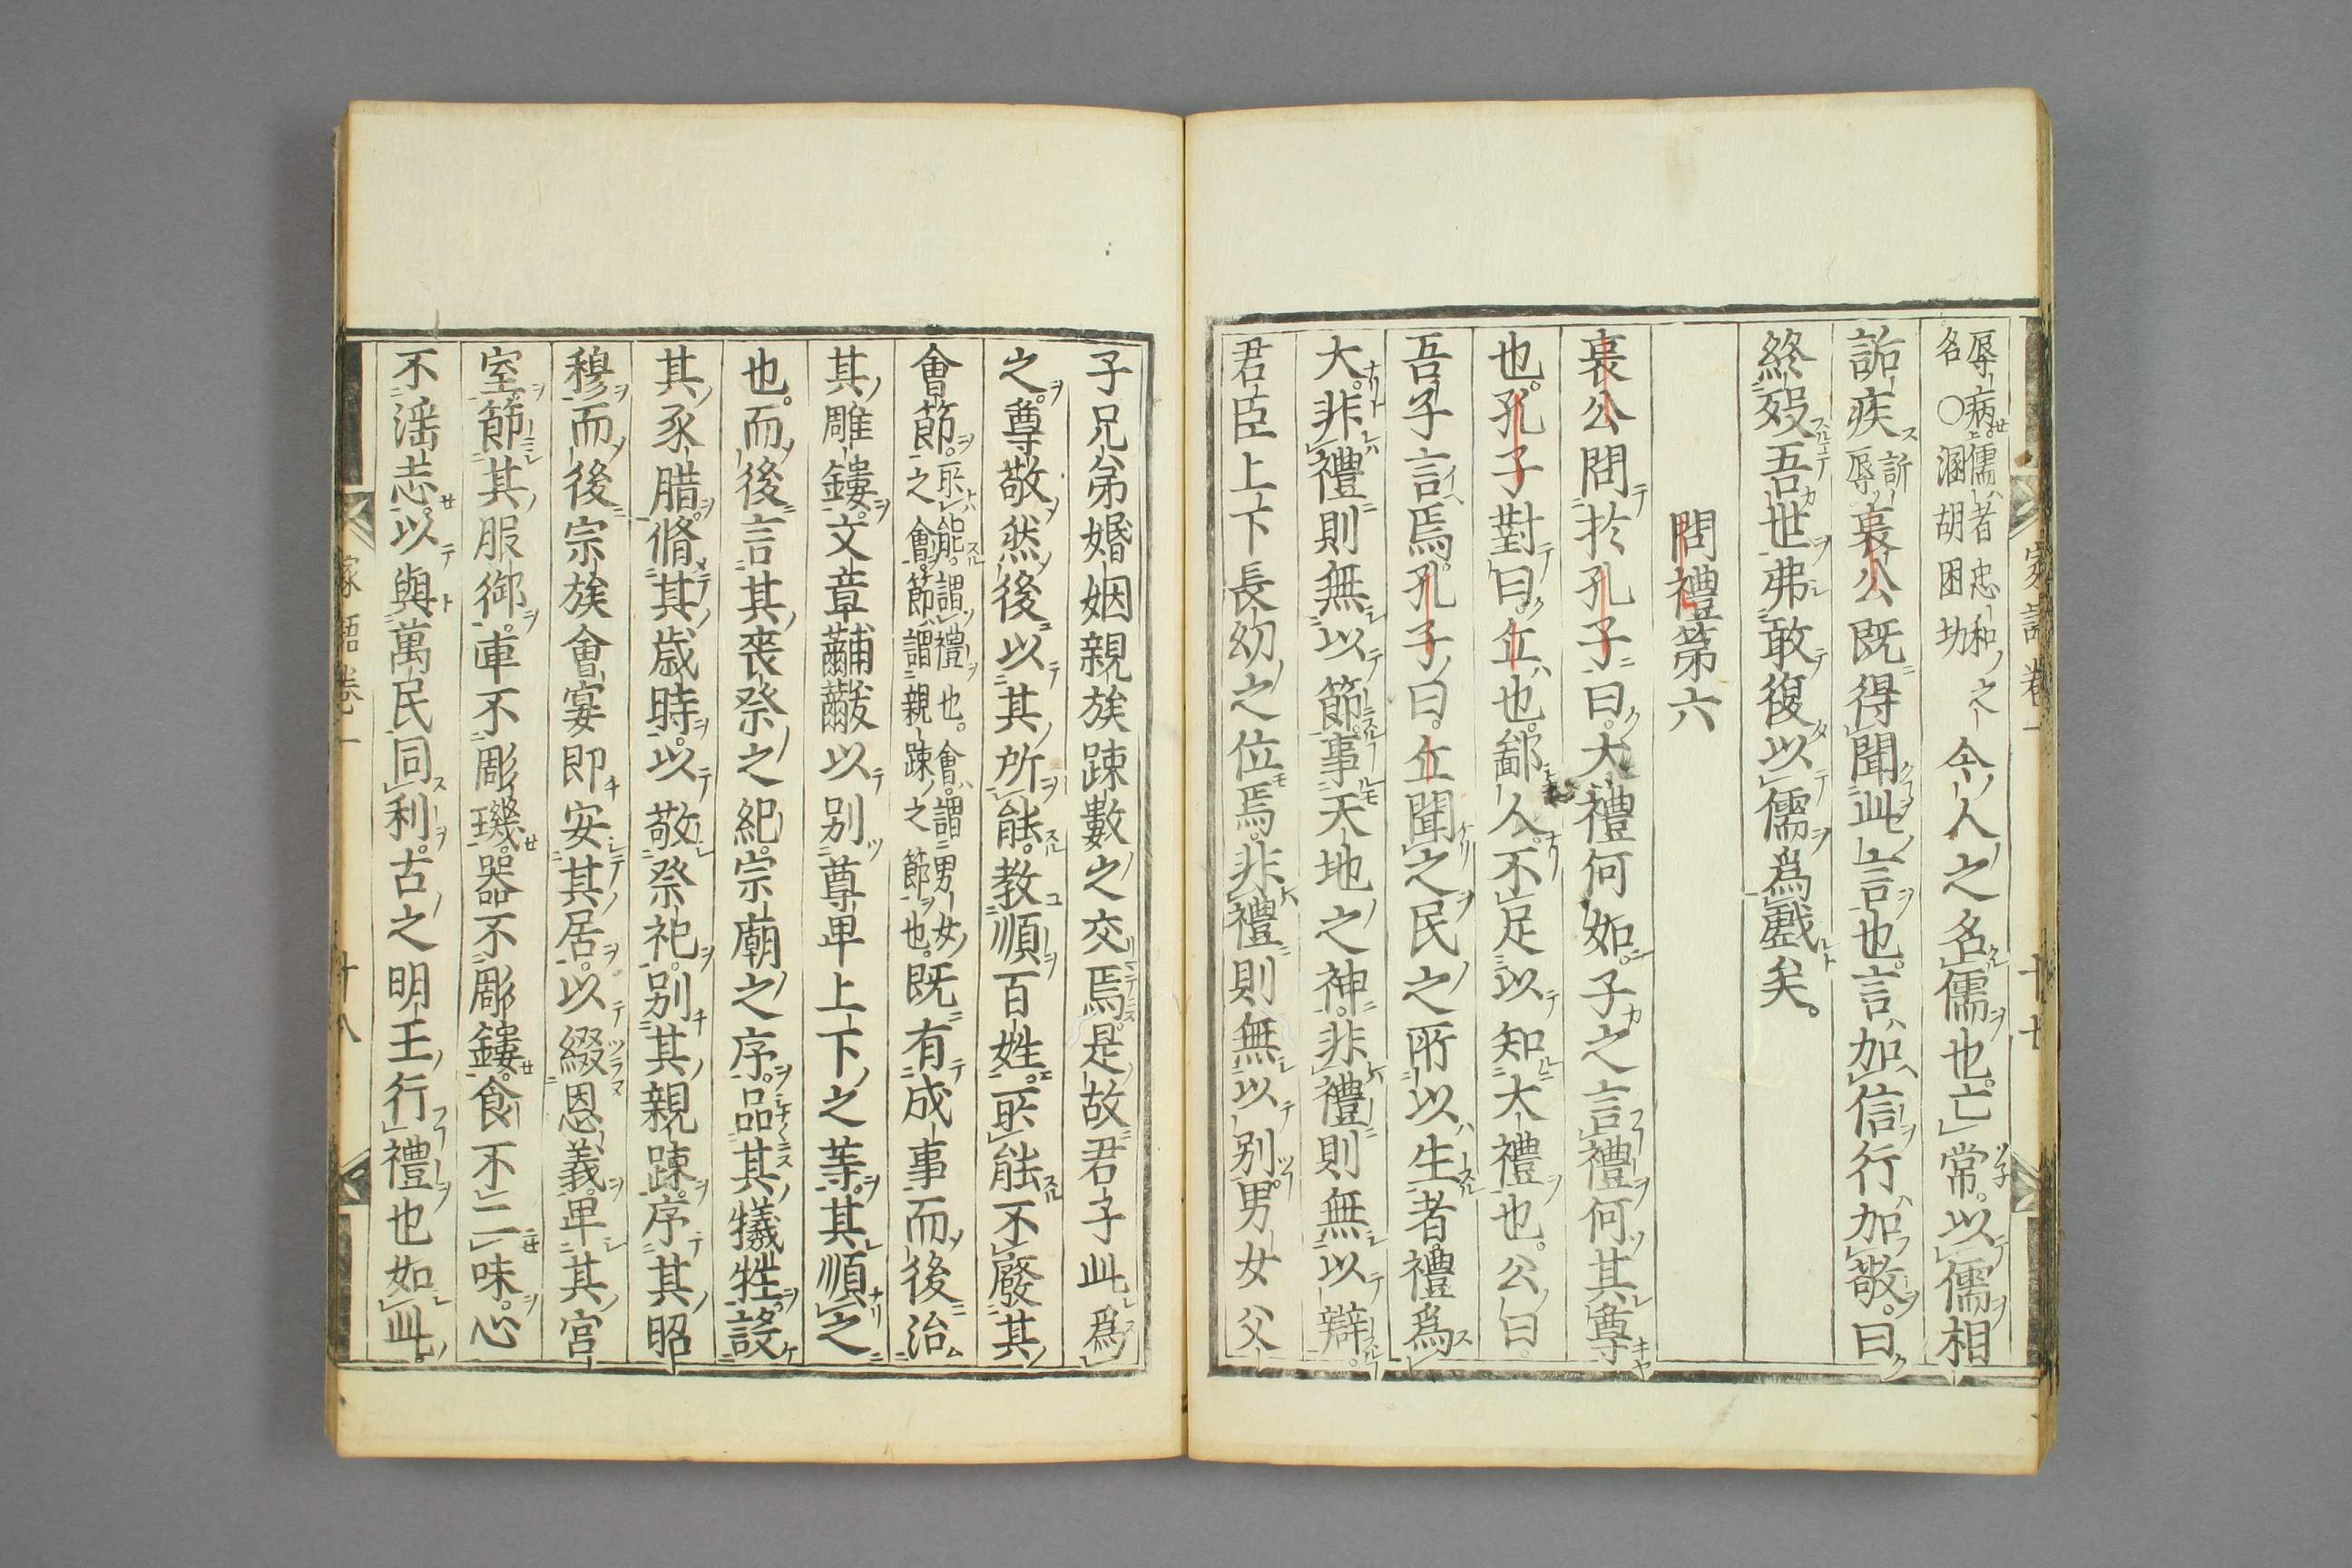 辱病儒者忠和之名〇溷胡困切今人之名儒也亡常以儒相
詬疾詬辱哀公既得聞此言也言加信行加敬曰
終歿吾世弗敢復以儒爲戲矣。
問禮第六
哀公問於孔子曰。大禮何如。子之言禮何其尊
也。孔子對曰。丘也。鄙人。不足以知大禮也。公曰。
吾子言焉。孔子曰。丘聞之民之所以生者。禮爲
大。非禮則無以節事天地之神。非禮則無以辯
君臣上下長幼之位焉。非禮則無以別男女父
子兄弟婚姻親族踈數之交焉。是故君子此爲
之尊敬然後以其所能。教順百姓。所能不廢其
會節。所能。謂禮也。會謂男女之會。節謂親踈之節也。既有成事而後治
其雕鏤。文章黼黻以別尊卑上下之等。其順之
也。而後言其喪祭之紀。宗廟之序。品其犧牲。設
其豕腊。脩其歲時。以敬祭祀。別其親踈。序其昭
穆而後宗族會宴即安其居。以綴恩義。卑其宮
室。節其服御。車不彫璣。器不彫鏤。食不二味。心
不淫志。以與萬民同利。古之明王行禮也如此。
家語卷一
十七
家語卷一
十八